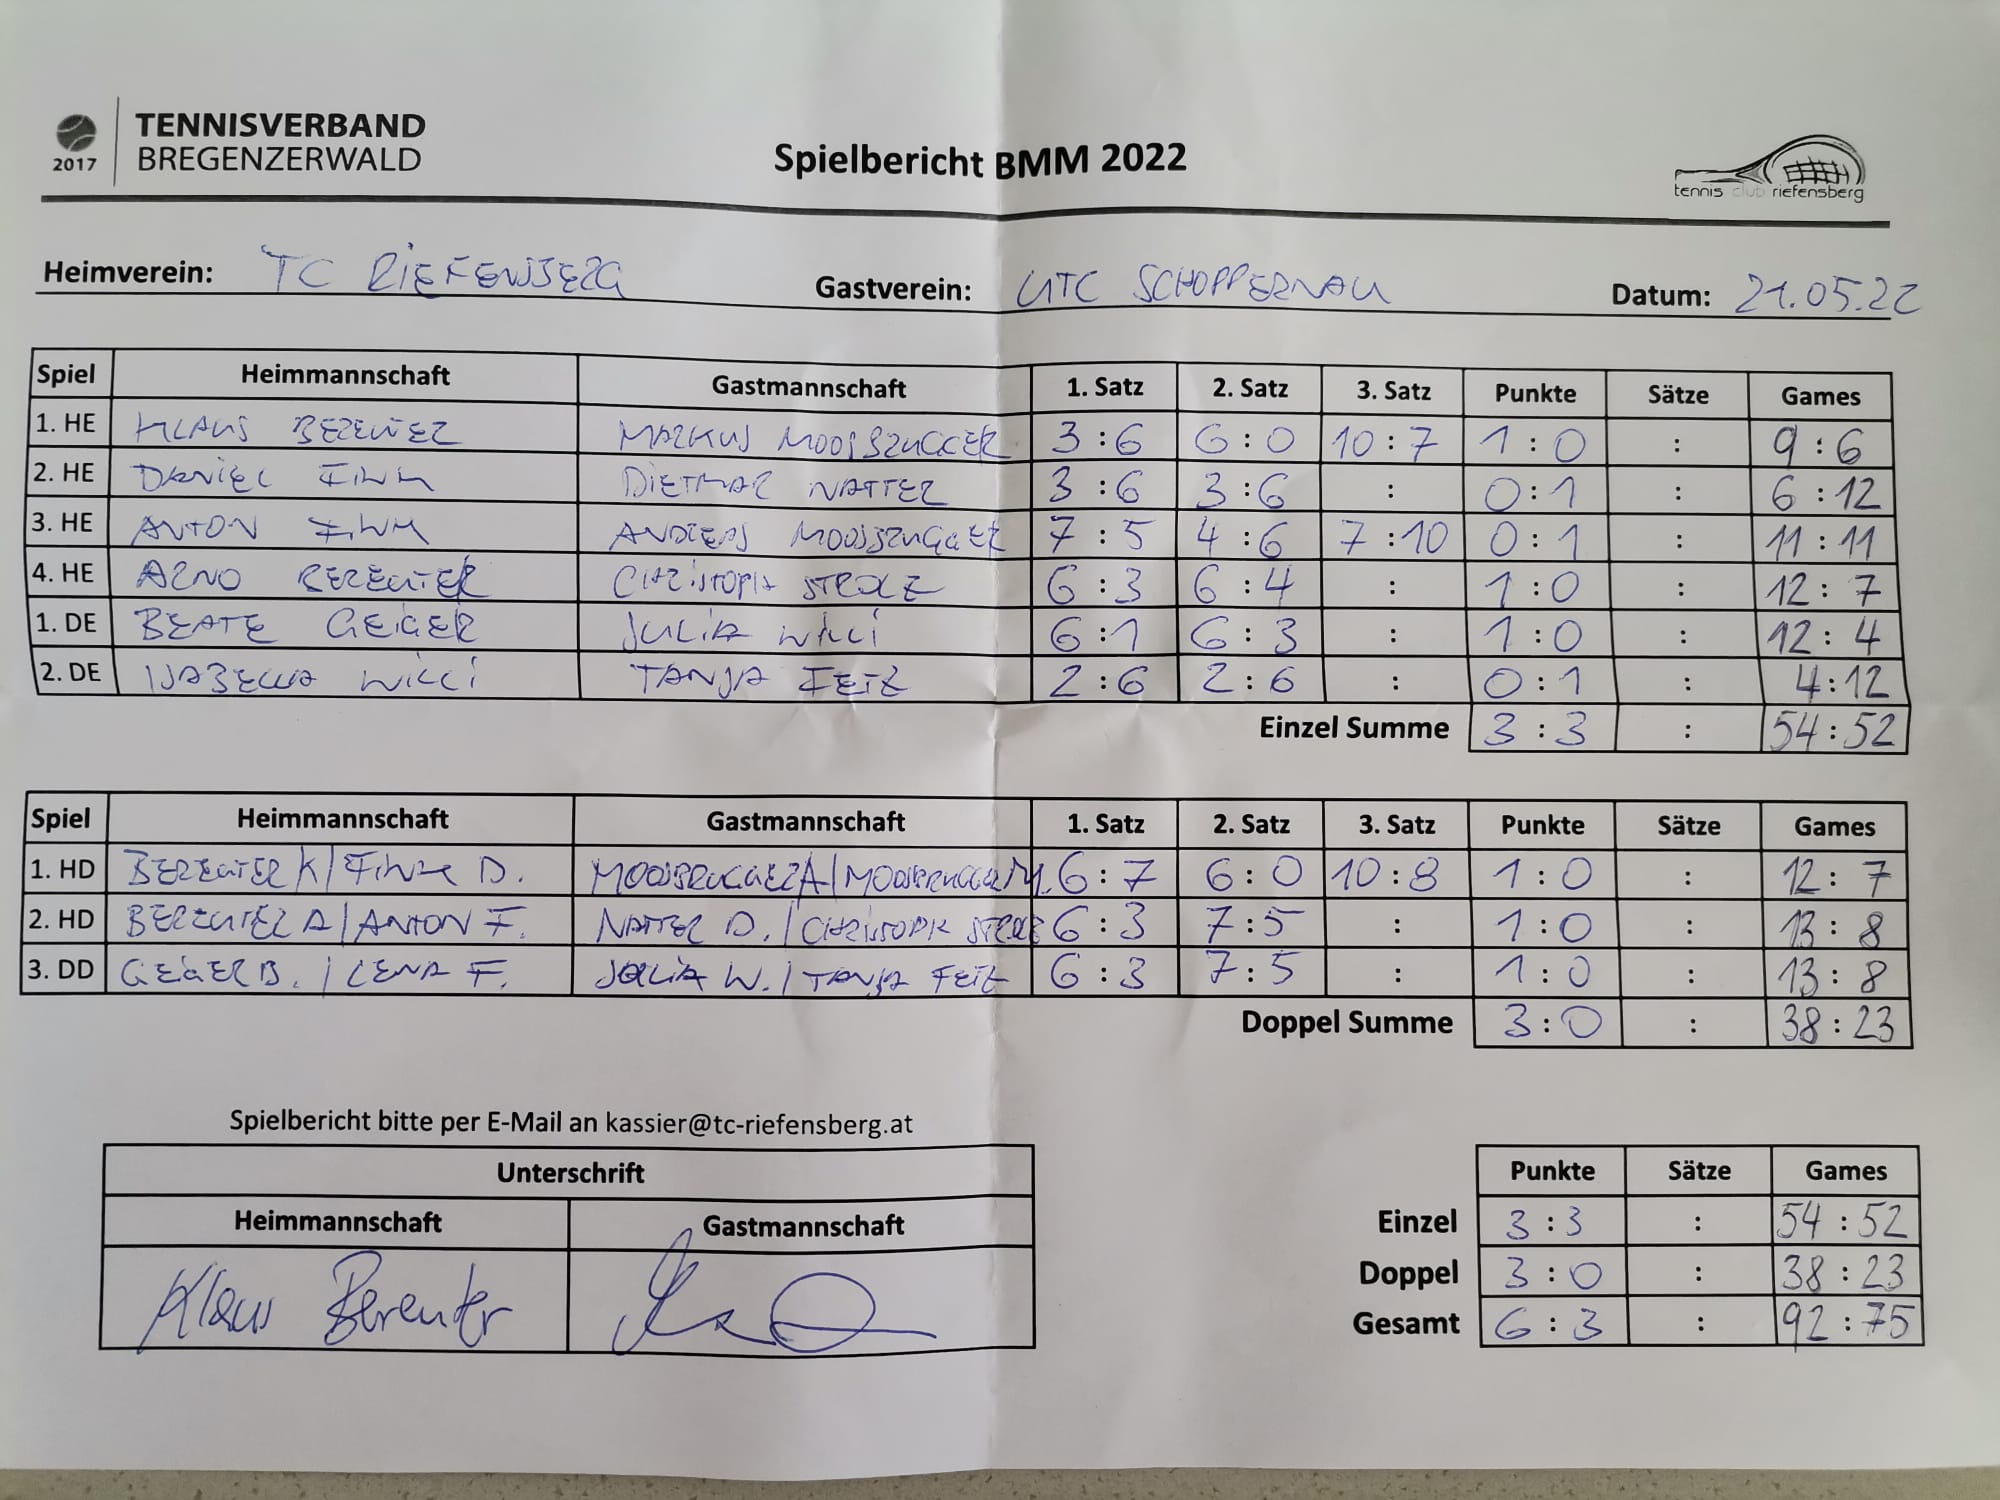 TENNISVERBAND
2017 BREGENZERWALD
Spielbericht BMM 2022
tennis club riefensberg
Heimverein: TC RIEFENSBERG Gastverein: UTC SCHOPPERNAU Datum: 21.05.22
Spiel Heimmannschaft Gastmannschaft 1. Satz 2. Satz 3. Satz Punkte Sätze Games
1. HE KLAUS BEREUTER MARKUS MOOSBRUGGER 3:6 6:0 10:7 1:0 : 9:6
2. HE DANIEL FINK DIETMAR NATTER 3:6 3:6 : 0:1 : 6:12
3. HE ANTON FINK ANDREAS MOOSBRUGGER 7:5 4:6 7:10 0:1 : 11:11
4. HE ARNO BEREUTER CHRISTOPH STROLZ 6:3 6:4 : 1:0 : 12:7
1. DE BEATE GEIGER JULIA WILLI 6:1 6:3 : 1:0 : 12:4
2. DE ISABELLA WILLI TANJA FEITZ 2:6 2:6 : 0:1 : 4:12
Einzel Summe 3:3 : 54:52
Spiel Heimmannschaft Gastmannschaft 1. Satz 2. Satz 3. Satz Punkte Sätze Games
1. HD BEREUTER K/FINK D. MOOSBRUGGER A/MOOSBRUGGER M. 6:7 6:0 10:8 1:0 : 12:7
2. HD BEREUTER A/ANTON F. NATTER D./CHRISTOPH STROLZ 6:3 7:5 : 1:0 : 13:8
3. DD GEIGER B./LENA F. JULIA W./TANJA FEITZ 6:3 7:5 : 1:0 : 13:8
Doppel Summe 3:0 : 38:23
Spielbericht bitte per E-Mail an kassier@tc-riefensberg.at
Unterschrift
Heimmannschaft Gastmannschaft
Klaus Bereuter
Punkte Sätze Games
Einzel 3:3 : 54:52
Doppel 3:0 : 38:23
Gesamt 6:3 : 92:75